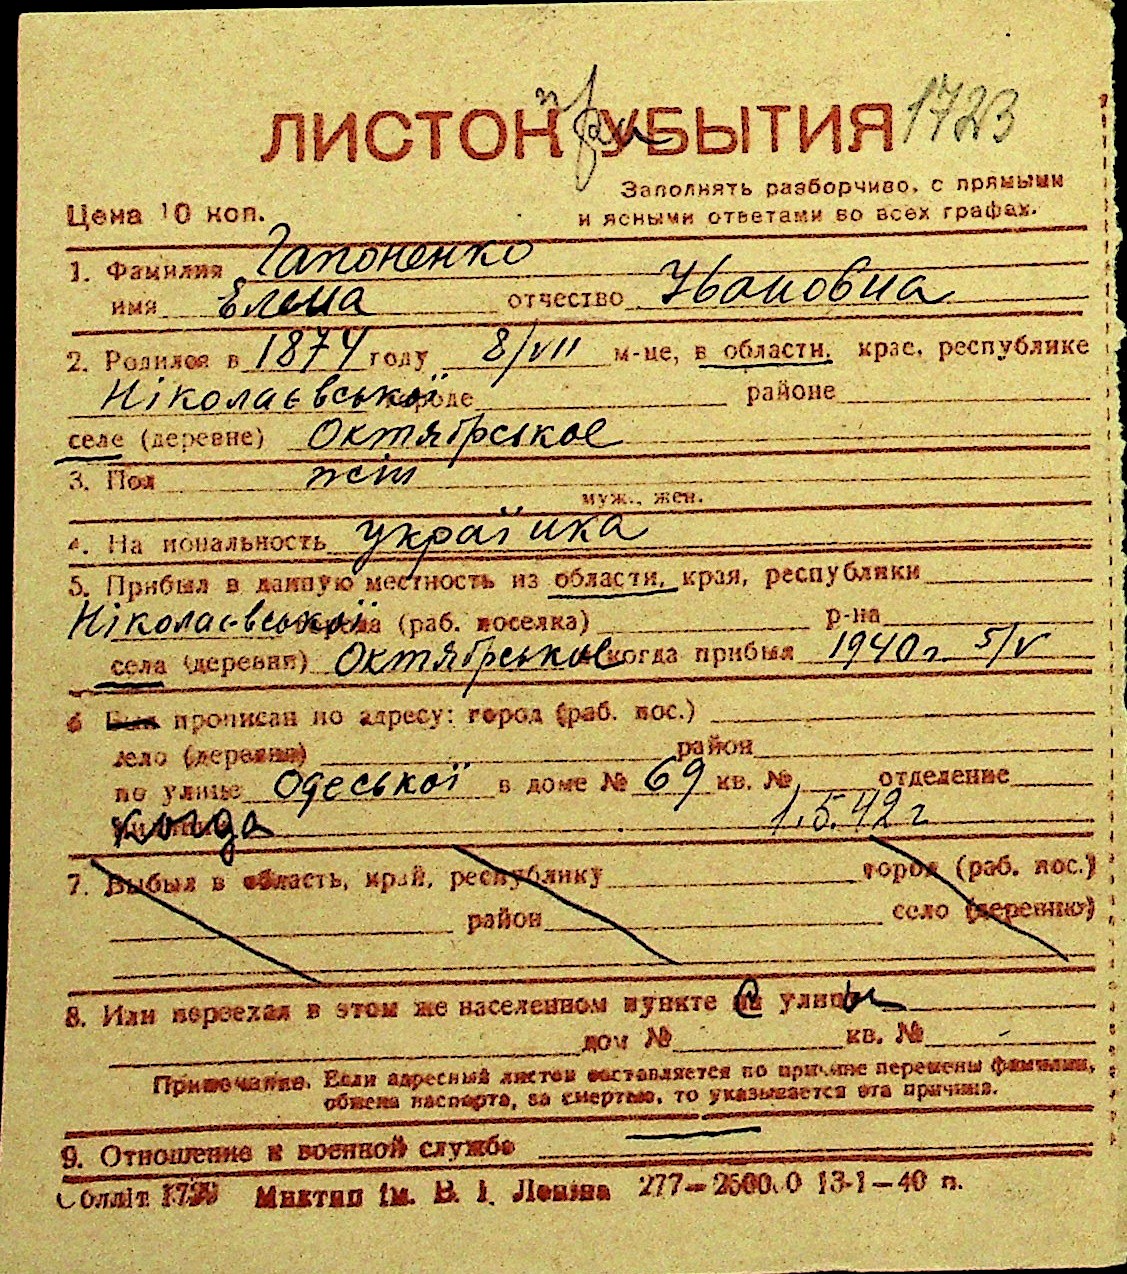 ЛИСТОК УБЫТИЯ 1723
Заполнять разборчиво, с прямыми
Цена 10 коп. и ясными ответами во всех графах.
1. Фамилия Гапоненко
имя Елена отчество Ивановна
2. Родился в 1874 году 8/VII м-це, в области, крае, республике
Ніколаєвської городе районе
селе (деревне) Октябрськое
3. Пол жін
муж., жен.
4. На иональность українка
5. Прибыл в данную местность из области, края, республики
Ніколаєвської города (раб. поселка) р-на
села (деревни) Октябрськое когда прибыл 1940 г 5/V
6 Был прописан по адресу: город (раб. пос.)
село (деревня) район
по улице Одеської в доме № 69 кв. № отделение
когда 1.5.42 г
7. Выбыл в область, край, республику город (раб. пос.)
район село (деревню)
8. Или переехал в этом же населенном пункте с улицы
дом № кв. №
Примечание. Если адресный листок составляется по причине перемены фамилии,
обмена паспорта, за смертью, то указывается эта причина.
9. Отношение к военной службе
Облліт Миктип ім. В. І. Леніна 277—2500.0 13-1—40 п.